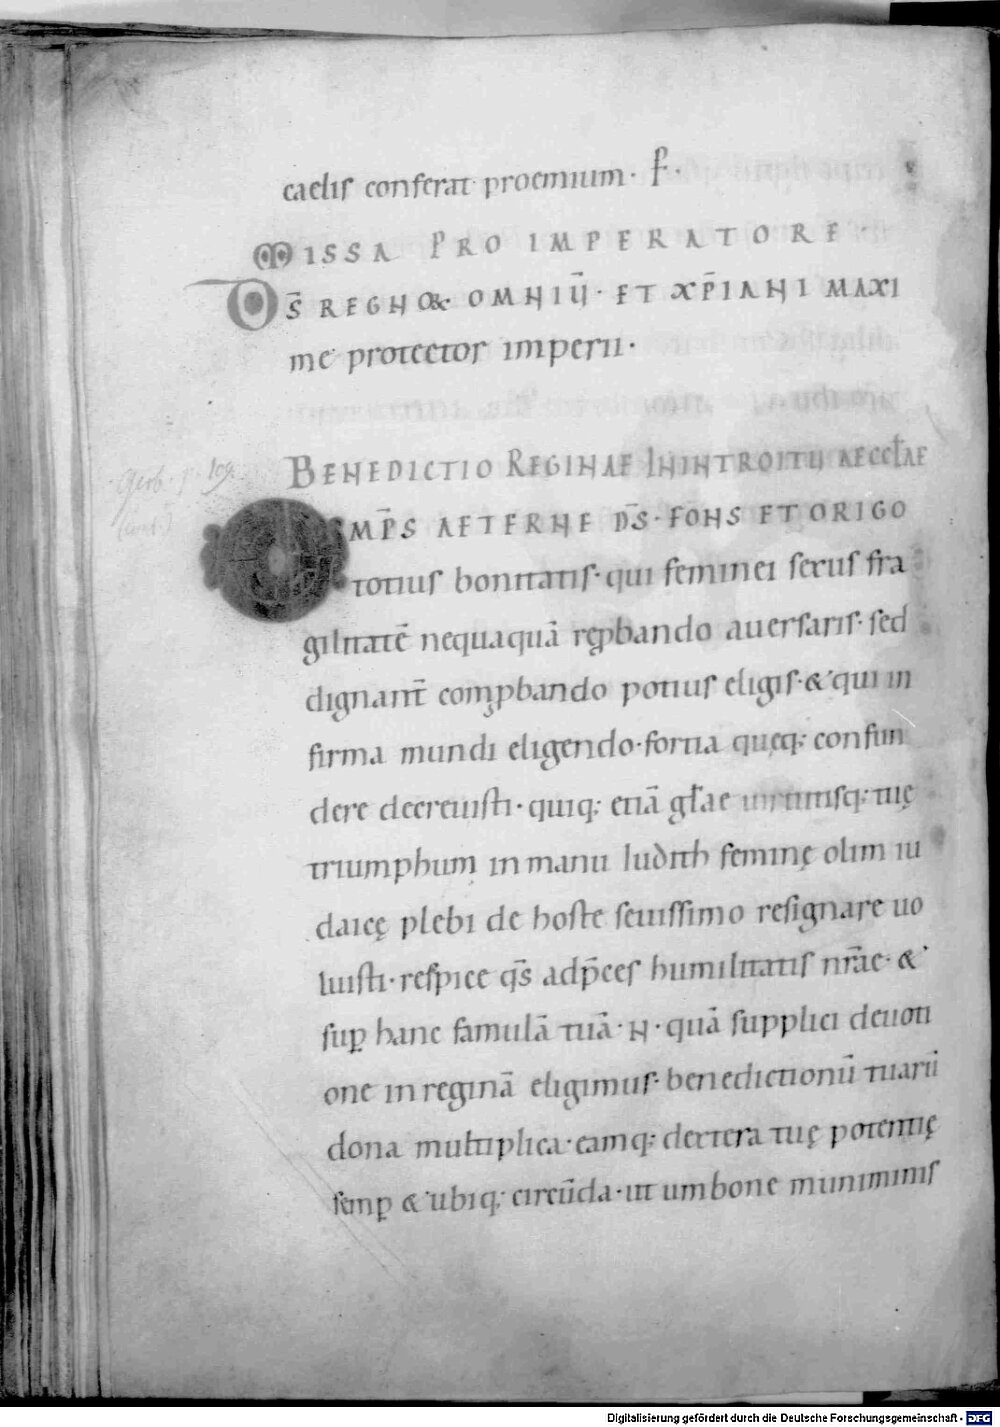 caelis conferat proemium · P̄ ·
MISSA PRO IMPERATORE ·
D̄S REGNO& OMNIŪ · ET XP̄IANI MAXI
me protector imperii ·
BENEDICTIO REGINAE IN INTROITU AECCL̄AE
OMP̄S AETERNE D̄S · FONS ET ORIGO
totius bonitatis · qui feminei sexus fra
gilitatē nequaquā rep̱bando auersaris · sed
dignant̄ comp̱bando potius eligis · & qui in
firma mundi eligendo · fortia quęq; confun
dere decreuisti · quiq; etiā gl̄ae uirtutisq; tuę
triumphum in manu Iudith feminę olim iu
daicę plebi de hoste seuissimo resignare uo
luisti · respice qs̄ ad p̄ces humilitatis nr̄ae · &
sup̱ hanc famulā tuā · N · quā supplici deuoti
one in reginā eligimus · benedictionū tuarū
dona multiplica · eamq; dextera tuę potentię
semp̱ & ubiq; circūda · ut umbone muniminis
Gerb. 109
Digitalisierung gefördert durch die Deutsche Forschungsgemeinschaft - DFG